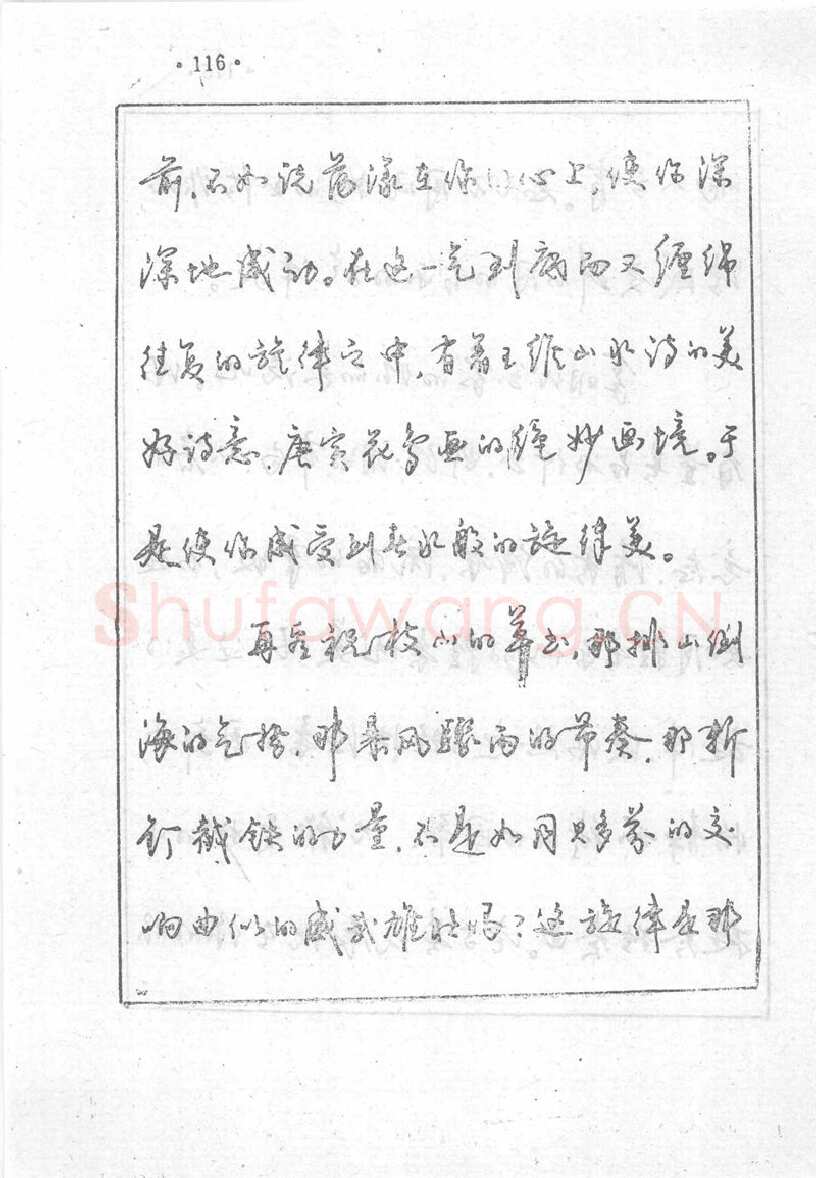 ·116·
前,不如说荡漾在你的心上,使你深
深地感动。在这一气到底而又缠绵
往复的旋律之中,有着王维山水诗的美
好诗意,唐寅花鸟画的绝妙画境。于
是使你感受到春水般的旋律美。
Shufawang.CN
再看祝枝山的草书,那排山倒
海的气势,那暴风骤雨的节奏,那斩
钉截铁的力量,不是如同贝多芬的交
响曲似的威武雄壮吗?这旋律是那